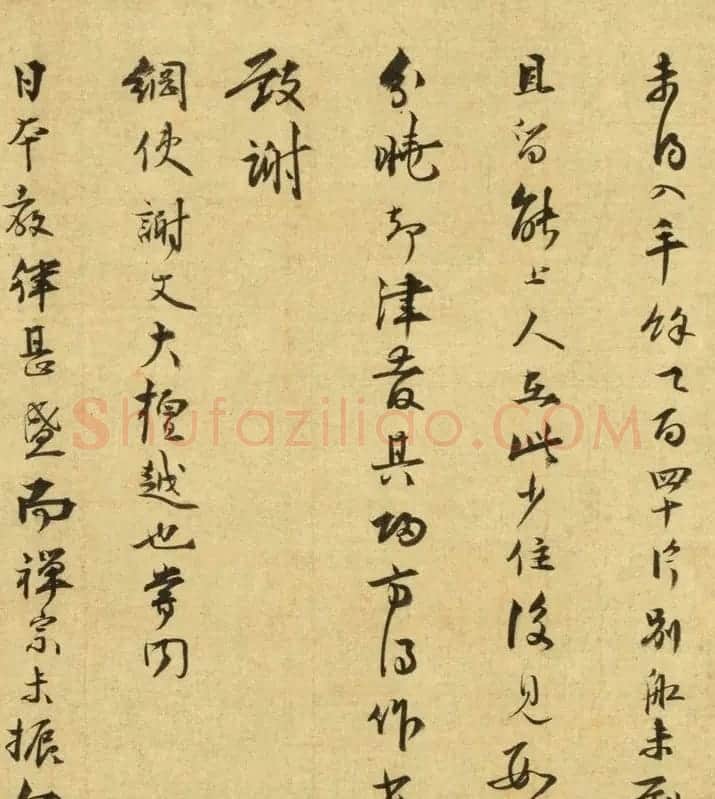 未得入手餘百四十片別船未到
且留能上人在此少住後見數
分曉却津發其歸方得作書
致謝
綱使謝丈大檀越也嘗聞
日本教律甚盛而禪宗未振
Shufaziliao.COM